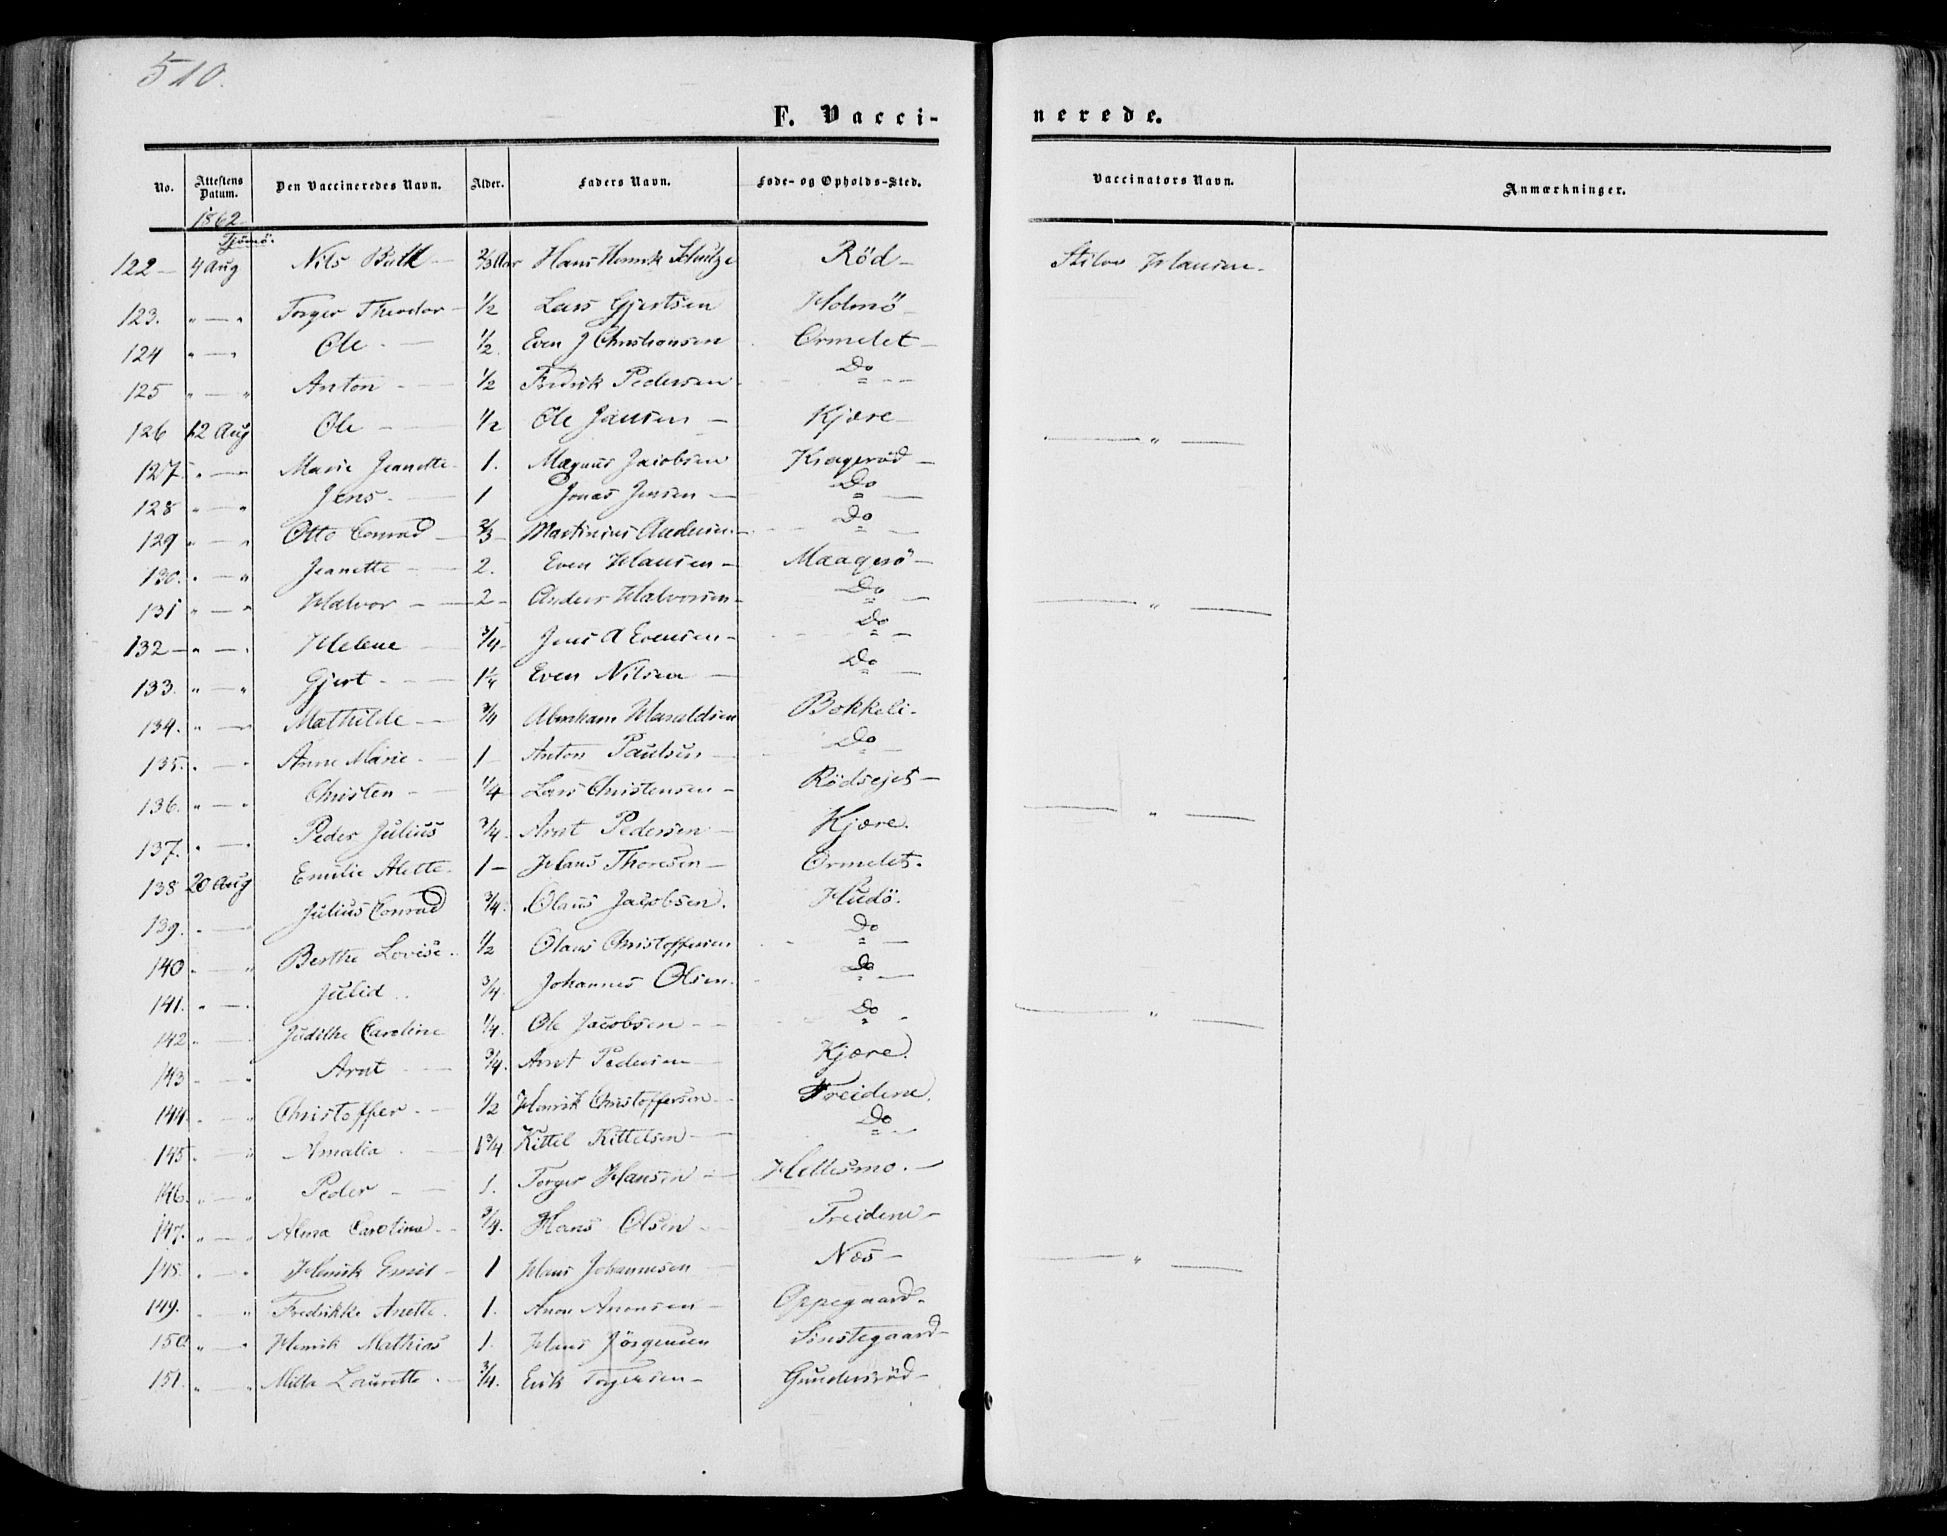 510.
F. Vacci-
nerede.
No. Attestens Datum. Den Vaccineredes Navn. Alder. Faders Navn. Føde- og Opholds-Sted. Vaccinators Navn. Anmærkninger.
1862
Tjömö.
122 – 4 Aug Nils – 2/3 Aar Hans Henrik Schultze Röd – Hansen –
123. " — " Torger Theodor – 1/2 Lars Gjertsen Holmö –
124 " — " Ole – 1/2 Even J Christiansen Ormelet –
125 " — " Anton – 1/2 Fredrik Pedersen – Do
126 12 Aug Ole – 1/2 Ole Jansen – Kjære — " —
127. " — " Marie Jeanette – 1. Magnus Jacobsen Kragerød –
128 " — " Jens – 1 Jonas Jensen – Do
129 " — " Otto Conrad – 2/3 – Martinius Andersen – Do
130. " — " Jeanette – 2. Even Hansen – Maagerö –
131 " — " Halvor – 2 – Anders Halvorsen – Do — " —
132 – " — " Helene – 3/4 – Jens A Evensen – Do
133. " — " Gjert – 1 1/4 Even Nilsen – Do
134. " — " Mathilde – 3/4 Abraham Haraldsen Bekkeli –
135. " — " Anne Marie – 1 – Anton Paulsen – Do
136. " — " Christen – 1/4 Lars Christensen – Rödsejet –
137. " — " Peder Julius 3/4 Arnt Pedersen – Kjære. — " —
138 20 Aug Emilie Alette. 1 – Hans Thoresen – Ormelet.
139. " — " Julius Conrad 3/4. Olaus Jacobsen. Hudö.
140 " — " Berthe Lovise. 1/2 Olaus Christoffersen Do
141. " — " Julid 3/4. Johannes Olsen. Do
142 " — " Judithe Caroline 1/4. Ole Jacobsen – Do — " —
143 " — " Arnt – 3/4. Arnt Pedersen – Kjære.
144. " — " Christoffer – 1/2 Henrik Christoffersen – Treidene.
145 " — " Amalia – 1 3/4 Kittel Kittelsen – Do
146. " — " Peder – 1. Torger Hansen – Hellesmo. –
147. " — " Alma Carolina – 3/4. Hans Olsen – Treidene –
148. " — " Henrik Emil – 1 Hans Johannesen – Nes – — " —
149. " — " Fredrikke Anette. 1. Anon Anonsen – Oppegaard –
150 " — " Henrik Mathias 1. Hans Jörgensen Sinstegaard –
151. " — " Milla Laurette – 3/4. Erik Torgersen – Gundersröd –